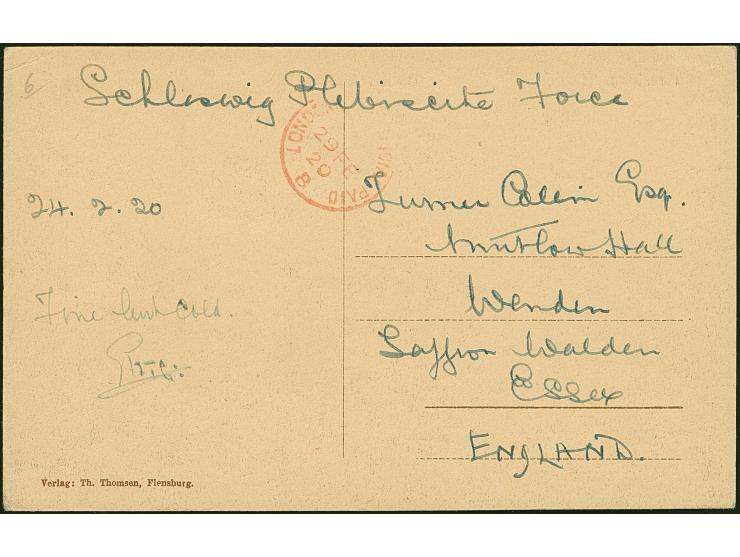 6
Schleswig Plebiscite Force
LONDON
29 FE
20
PAID
8
24. 2. 20
Turner Collin Esq.
Hall
Wenden
Saffron Walden
Essex
ENGLAND.
Fine but cold.
Verlag: Th. Thomsen, Flensburg.